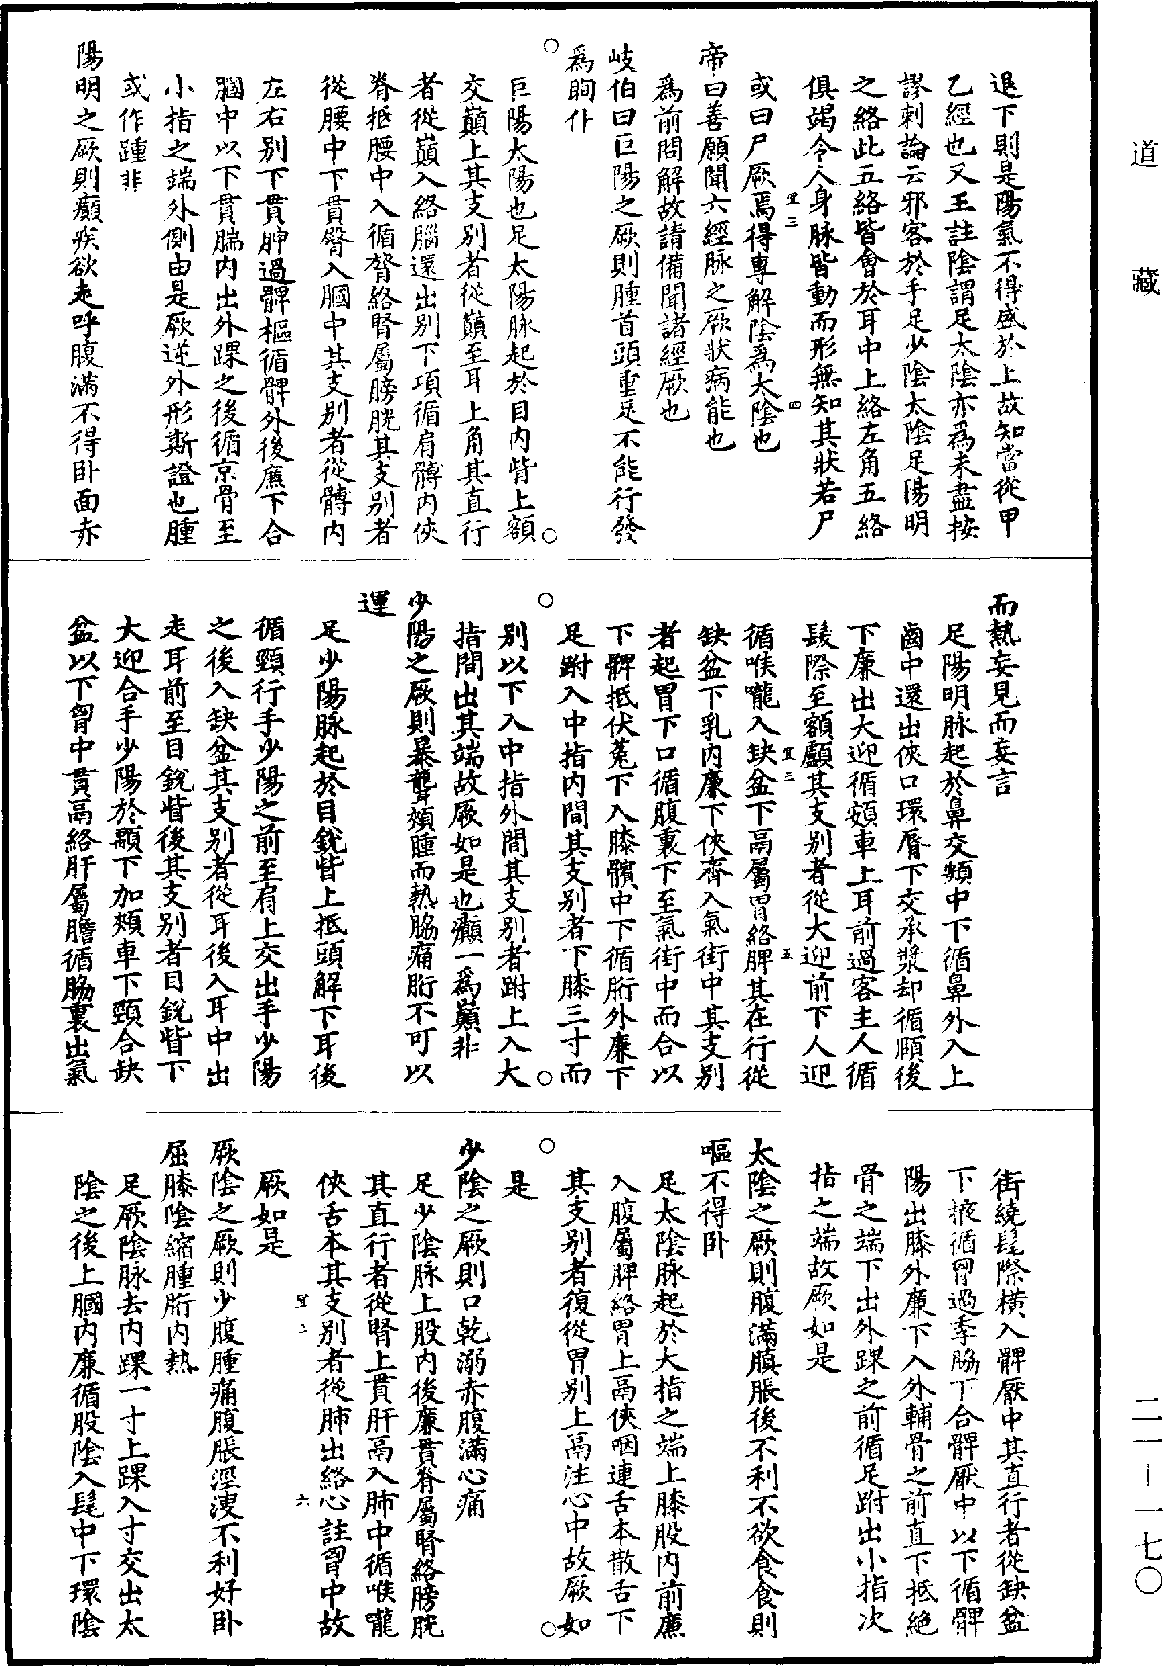 道藏
二一－一七〇
退下則是陽氣不得盛於上故知當從甲
乙經也又王註陰謂足太陰亦為未盡按
謬刺論云邪客於手足少陰太陰足陽明
之絡此五絡皆會於耳中上絡左角五絡
俱竭令人身脉皆動而形無知其狀若尸
或曰尸厥焉得專解陰為太陰也
帝曰善願聞六經脉之厥狀病能也
為前問解故請備聞諸經厥也
岐伯曰巨陽之厥則腫首頭重足不能行發
為眴仆
巨陽太陽也足太陽脉起於目內眥上額
交巔上其支別者從巔至耳上角其直行
者從巔入絡腦還出別下項循肩髆內俠
脊抵腰中入循膂絡腎屬膀胱其支別者
從腰中下貫臀入膕中其支別者從髆內
左右別下貫胂過髀樞循髀外後廉下合
膕中以下貫腨內出外踝之後循京骨至
小指之端外側由是厥逆外形斯證也腫
或作踵非
陽明之厥則癲疾欲走呼腹滿不得卧面赤
而熱妄見而妄言
足陽明脉起於鼻交頞中下循鼻外入上
齒中還出俠口環脣下交承漿却循頤後
下廉出大迎循頰車上耳前過客主人循
髮際至額顱其支別者從大迎前下人迎
循喉嚨入缺盆下鬲屬胃絡脾其在行從
缺盆下乳內廉下俠齊入氣街中其支別
者起胃下口循腹裏下至氣街中而合以
下髀抵伏菟下入膝臏中下循胻外廉下
足跗入中指內間其支別者下膝三寸而
別以下入中指外間其支別者跗上入大
指間出其端故厥如是也癲一為巔非
少陽之厥則暴聾頰腫而熱脇痛胻不可以
運
足少陽脉起於目銳眥上抵頭解下耳後
循頸行手少陽之前至肩上交出手少陽
之後入缺盆其支別者從耳後入耳中出
走耳前至目銳眥後其支別者目銳眥下
大迎合手少陽於䪼下加頰車下頸合缺
盆以下胷中貫鬲絡肝屬膽循脇裏出氣
街繞髦際橫入髀厭中其直行者從缺盆
下掖循胷過季脇下合髀厭中以下循髀
陽出膝外廉下入外輔骨之前直下抵絕
骨之端下出外踝之前循足跗出小指次
指之端故厥如是
太陰之厥則腹滿䐜脹後不利不欲食食則
嘔不得卧
足太陰脉起於大指之端上膝股內前廉
入腹屬脾絡胃上鬲俠咽連舌本散舌下
其支別者復從胃別上鬲注心中故厥如
是
少陰之厥則口乾溺赤腹滿心痛
足少陰脉上股內後廉貫脊屬腎絡膀胱
其直行者從腎上貫肝鬲入肺中循喉嚨
俠舌本其支別者從肺出絡心註胷中故
厥如是
厥陰之厥則少腹腫痛腹脹涇溲不利好卧
屈膝陰縮腫胻內熱
足厥陰脉去內踝一寸上踝八寸交出太
陰之後上膕內廉循股陰入髦中下環陰